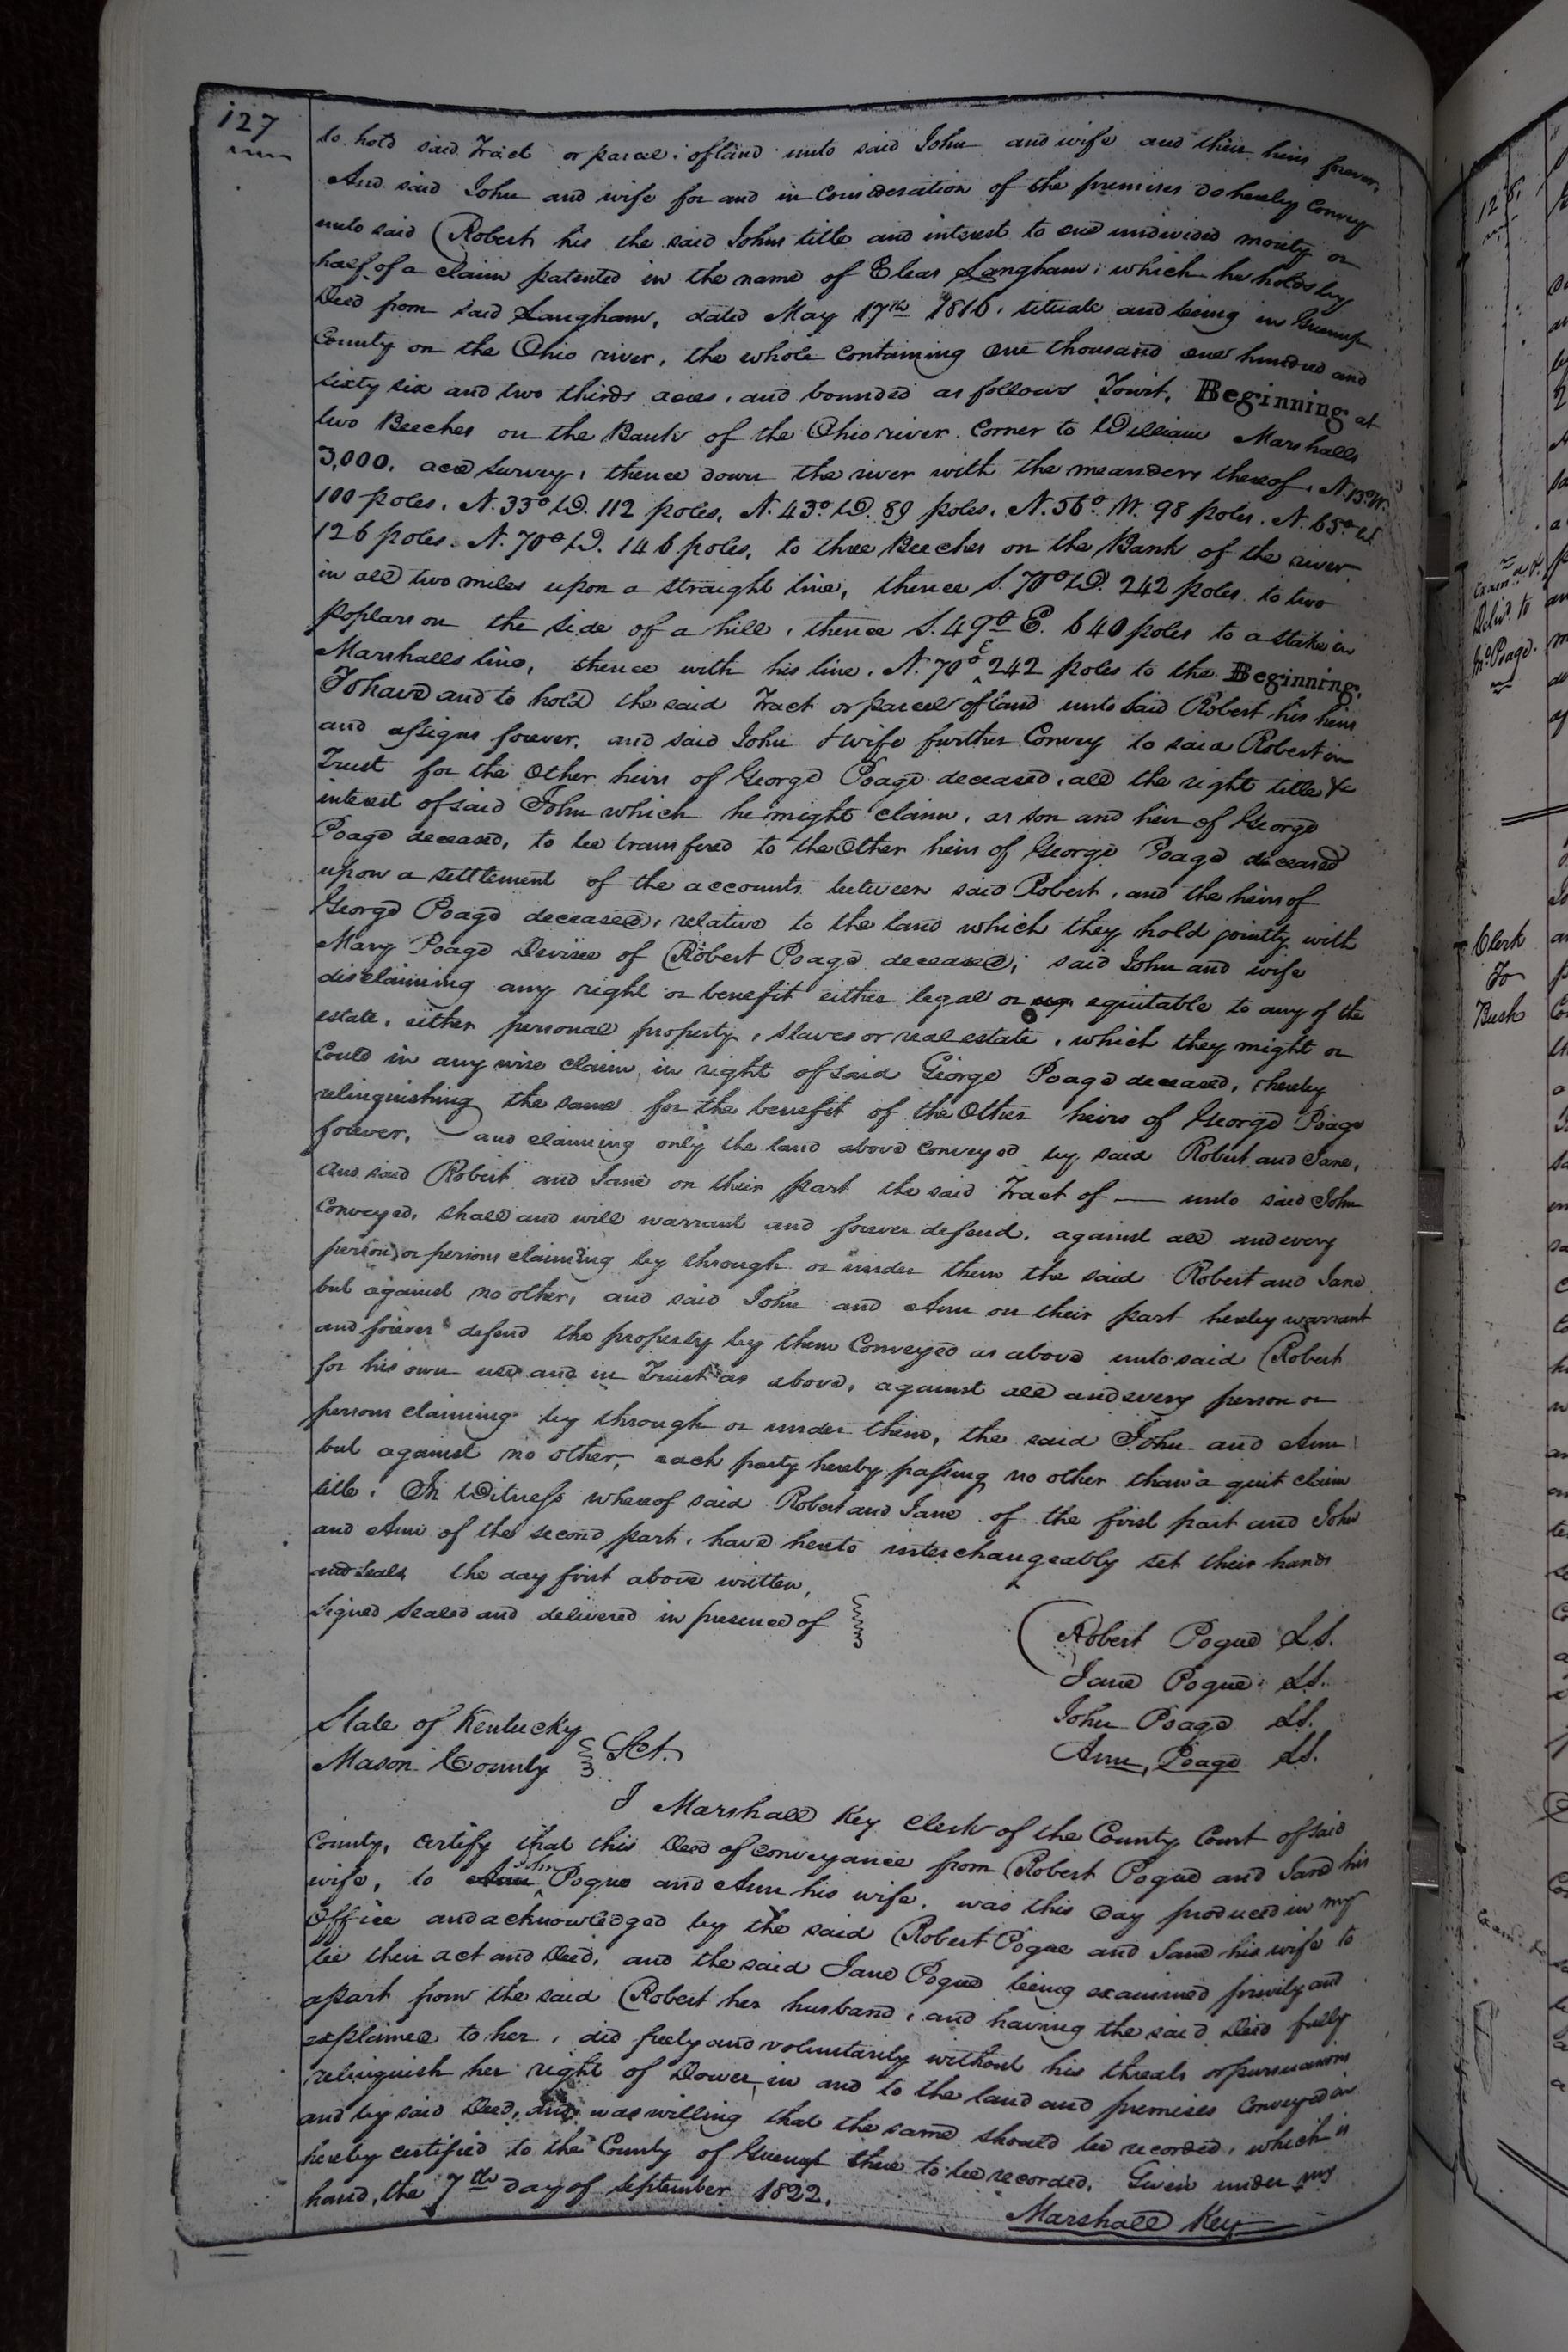 127
to hold said Tract or parcel of land unto said John and wife and their heirs forever,
And said John and wife for and in Consideration of the premises do hereby Convey
unto said Robert his the said Johns title and interest to one undivided moiety or
half of a claim patented in the name of Elias Langham, which he holds by
Deed from said Langham, dated May 17th 1816, situate and being in Greenup
County on the Ohio river, the whole containing One thousand one hundred and
sixty six and two thirds acres, and bounded as follows Towit, Beginning at
two Beeches on the Bank of the Ohio river Corner to William Marshalls
3,000, acre survey, thence down the river with the meanders thereof, N. 13° W.
100 poles, N. 33° W. 112 poles, N. 43° W. 89 poles, N. 56° W. 98 poles, N. 65° W.
126 poles. N. 70° W. 146 poles, to three Beeches on the Bank of the river
in all two miles upon a straight line, thence S. 70° W. 242 poles to two
poplars on the side of a hill, thence S. 49° E. 640 poles to a stake in
Marshalls line, thence with his line, N. 70° E 242 poles to the Beginning,
To have and to hold the said Tract or parcel of land unto said Robert his heirs
and assigns forever, and said John & wife further Convey to said Robert in
Trust for the Other heirs of George Poage deceased, all the right title &
interest of said John which he might claim, as son and heir of George
Poage deceased, to be transfered to the Other heirs of George Poage deceased
upon a settlement of the accounts between said Robert, and the heirs of
George Poage deceased, relative to the land which they hold jointly with
Mary Poage Devisee of Robert Poage deceased; said John and wife
disclaiming any right or benefit either legal or equitable to any of the
estate, either personal property, slaves or real estate, which they might or
Could in any wise claim in right of said George Poage deceased, hereby
relinquishing the same for the benefit of the Other heirs of George Poage
forever, and claiming only the land above Conveyed by said Robert and Jane,
And said Robert and Jane on their part the said Tract of — unto said John
Conveyed, shall and will warrant and forever defend, against all and every
person, or persons claiming by through or under them the said Robert and Jane
but against no other, and said John and Ann on their part hereby warrant
and forever defend the property by them Conveyed as above unto said Robert
for his own use and in Trust as above, against all and every person or
persons claiming by through or under them, the said John and Ann
but against no other, each party hereby passing no other than a quit claim
title. In Witness whereof said Robert and Jane of the first part and John
and Ann of the second part, have hereto interchangeably set their hands
and seals the day first above written,
Signed Sealed and delivered in presence of
Robert Pogue LS.
Jane Pogue LS.
John Poage LS.
Ann Poage LS.
State of Kentucky
Mason County Sct.
I Marshall Key Clerk of the County Court of said
County, Certify that this Deed of conveyance from Robert Pogue and Jane his
wife, to Ann John Pogue and Ann his wife, was this day produced in my
Office and acknowledged by the said Robert Pogue and Jane his wife to
be their act and Deed, and the said Jane Pogue being examined privily and
apart from the said Robert her husband, and having the said Deed fully
explained to her, did freely and voluntarily without his threats or persuasions
relinquish her right of Dower, in and to the land and premises Conveyed in
and by said Deed, and was willing that the same should be recorded, which is
hereby certified to the County of Greenup there to be recorded. Given under my
hand, the 7th day of September 1822.
Marshall Key
126
Deliv. to
Jno. Poage.
Clerk
To
Bush